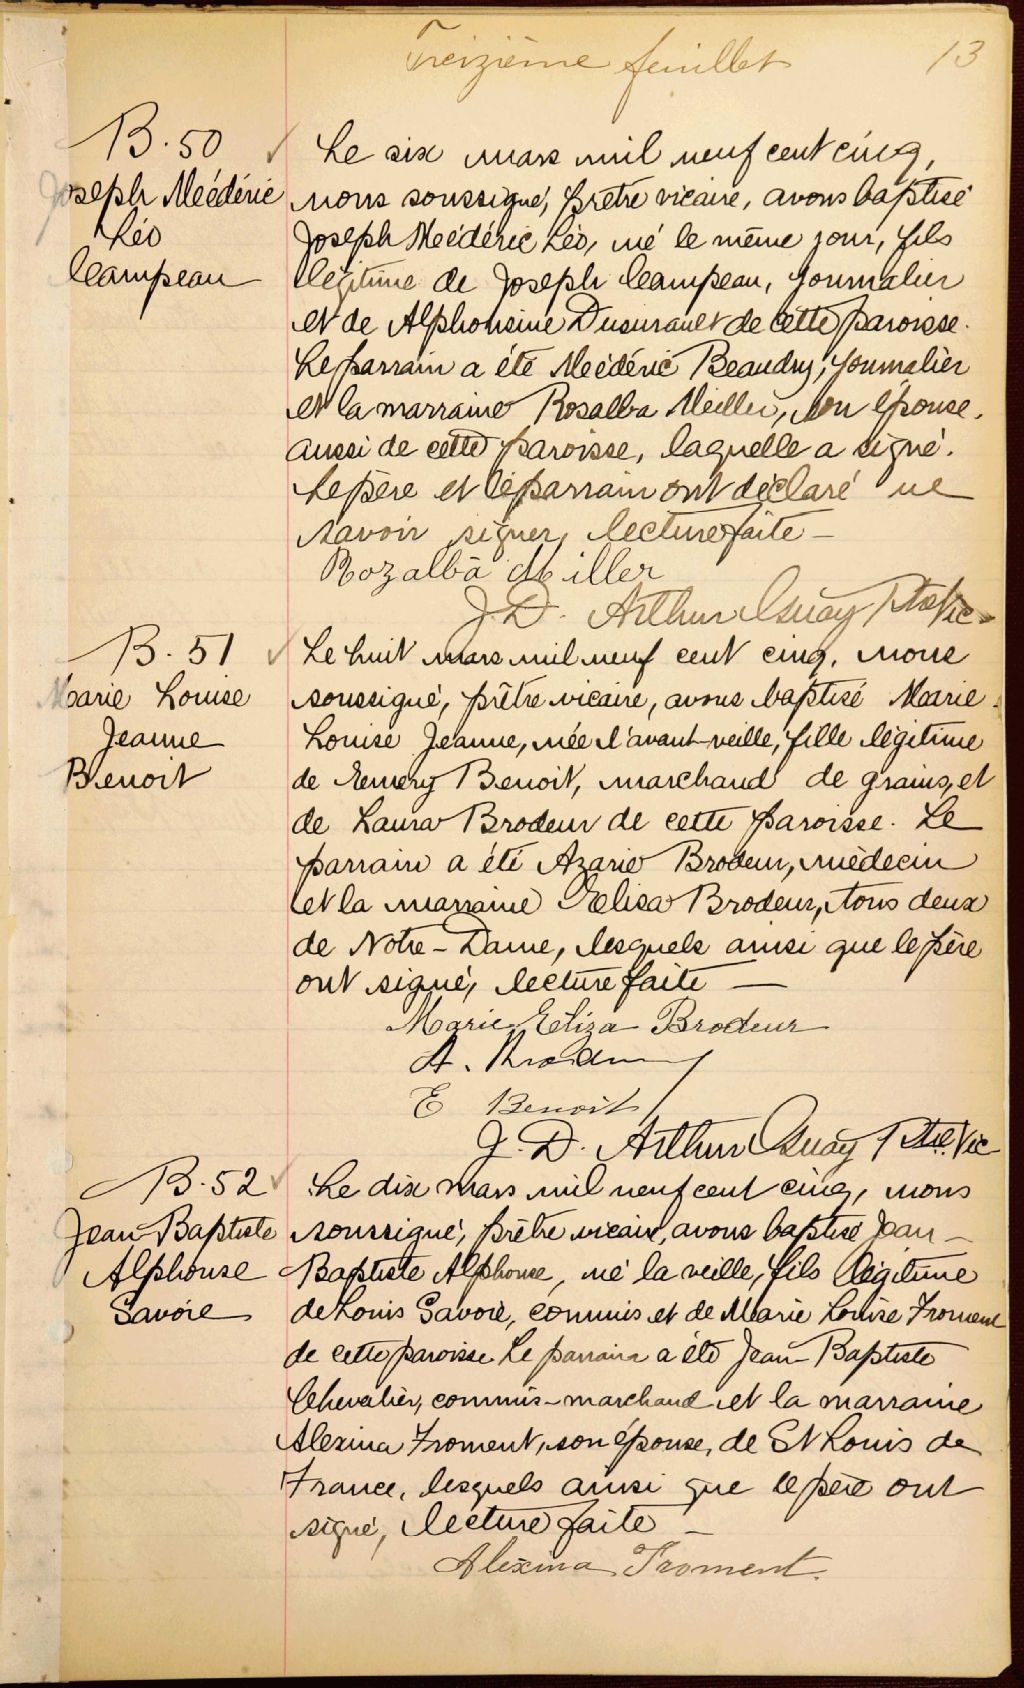 Treizième feuillet 13
B. 50
Joseph Médéric
Léo
Campeau
Le six mars mil neuf cent cinq,
nous soussigné, prêtre vicaire, avons baptisé
Joseph Médéric Léo, né le même jour, fils
légitime de Joseph Campeau, journalier
et de Alphonsine Dusurault de cette paroisse.
Le parrain a été Médéric Beaudry, journalier
et la marraine Rosalba Meiller, son épouse,
aussi de cette paroisse, laquelle a signé.
Le père et le parrain ont déclaré ne
savoir signer, lecture faite –
Rozalba Miller
J. D. Arthur Guay Ptre Vic
B. 51
Marie Louise
Jeanne
Benoit
Le huit mars mil neuf cent cinq, nous
soussigné, prêtre vicaire, avons baptisé Marie
Louise Jeanne, née l'avant-veille, fille légitime
de Emery Benoit, marchand de grains, et
de Laura Brodeur de cette paroisse. Le
parrain a été Azarie Brodeur, médecin
et la marraine Eliza Brodeur, tous deux
de Notre-Dame, lesquels ainsi que le père
ont signé, lecture faite —
Marie Eliza Brodeur
A. Brodeur
E Benoit
J. D. Arthur Guay Ptre Vic
B. 52
Jean-Baptiste
Alphonse
Savoie
Le dix mars mil neuf cent cinq, nous
soussigné, prêtre vicaire, avons baptisé Jean-
Baptiste Alphonse, né la veille, fils légitime
de Louis Savoie, commis et de Marie Louise Froment
de cette paroisse Le parrain a été Jean-Baptiste
Chevalier, commis-marchand et la marraine
Alexina Froment, son épouse, de St Louis de
France, lesquels ainsi que le père ont
signé, lecture faite –
Alexina Froment.